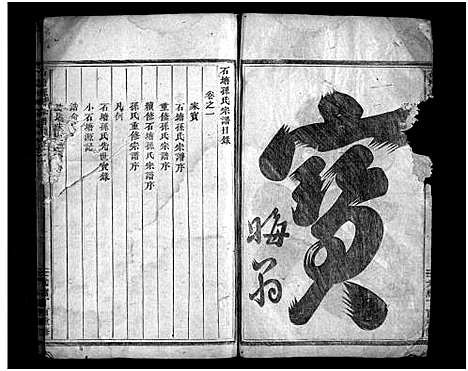 寶
晦翁
石塘孫氏宗譜目錄
卷之一
家寶
石塘孫氏宗譜序
重修孫氏宗譜序
續修石塘孫氏宗譜序
孫氏重修宗譜序
凡例
石塘孫氏先世實錄
小石塘遊記
誥命